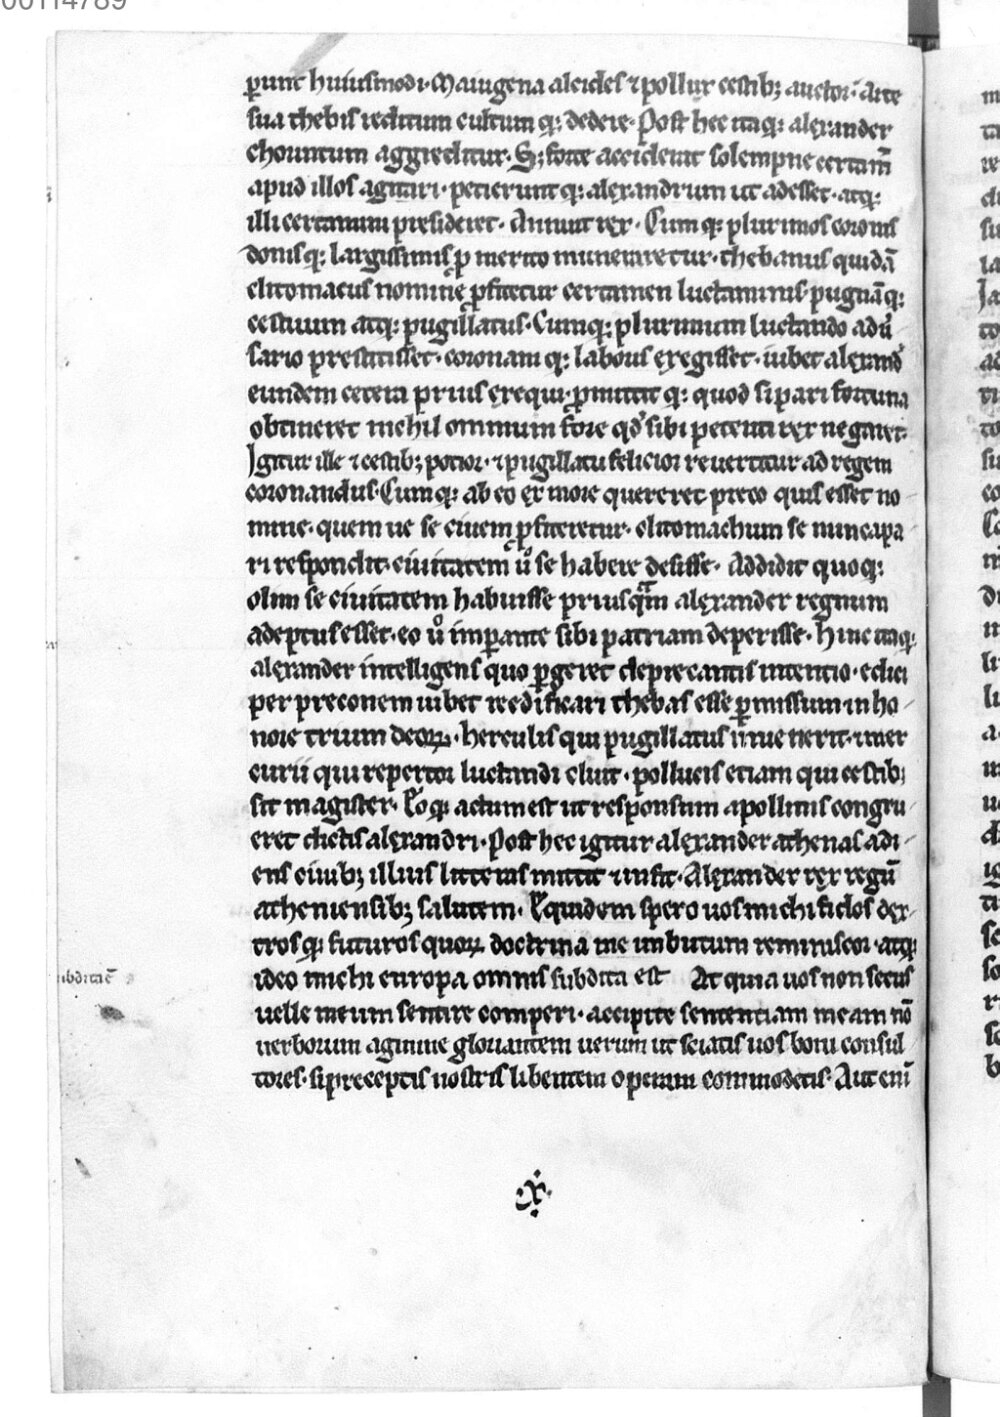 00114789
ꝑunt huiusmodi· Maiugena alcides ⁊ pollux cestib; auctor· Arte
sua thebis reditum cultum q; dedere· Post hec itaq; alexander
chorintum aggreditur· S; forte acciderat solempne certam̄
apud illos agitari· petierunt q; alexandrum ut adesset· atq;
illi certamini presideret· Annuit rex· Cum q; plurimos coronis
donis q; largissimis ꝓ merito muneraretur· thebanus quidā
clitomacus nomine ꝓfitetur certamen luctaminis· pugnāq;
cestuum atq; pugillatus· Cumq; plurimum luctando adū
sario prestitisset· coronam q; laboris exegisset· iubet alexand̄
eundem cetera prius exequi· ꝓmittit q; quod si pari fortuna
obtineret nichil omnium fore qd̄ sibi petenti rex negaret·
Igitur ille ⁊ cestib; potior· ⁊ pugillatu felicior reuertitur ad regem
coronandus· Cumq; ab eo ex more quereret preco quis esset no
mine· quem ue se ciuem ꝓfiteretur· clitomachum se nuncapa
ri respondit· ciuitatem ů se habere desisse· Addidit quoq;
olim se ciuitatem habuisse priusq̄m alexander regnum
adeptus esset· eo ů imꝑante sibi patriam deperisse· Hinc itaq;
alexander intelligens quo ꝑgeret deprecantis intentio· edici
per preconem iubet reedificari thebas esse ꝑmissum in ho
nore trium deoꝝ· herculis qui pugillatus inuenerit· mer
curii qui repertor luctandi cluit· pollucis etiam qui cestib;
sit magister· Eoq; actum est ut responsum apollinis congru
eret dictis alexandri· Post hec igitur alexander athenas adi
ens ciuib; illius litteras mittit ⁊ infit· Alexander rex regū
atheniensib; salutem· Equidem spero uos michi fidos dex
tros q; futuros quoꝝ doctrina me imbutum reminiscor· atq;
ideo michi europa omnis subdita est At quia uos non secus
uelle meum sentire comperi· accipite sententiam meam nō
uerborum agmine gloriantem uerum ut sciatis uos boni consul
tores· si preceptis nostris libentem operam commodetis· Aut eni̅
·X·